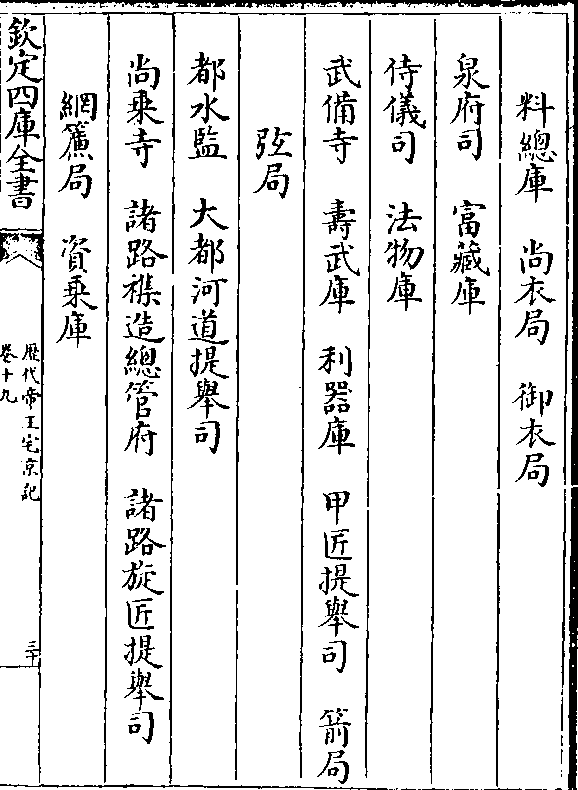 料總庫　尚衣局　御衣局
泉府司　富藏庫
侍儀司　法物庫
武備寺　壽武庫　利器庫　甲匠提舉司　箭局
弦局
都水監　大都河道提舉司
尚乗寺　諸路雜造總管府　諸路旋匠提舉司
網簾局　資乗庫
欽定四庫全書
歷代帝王宅京記
卷十九
三十